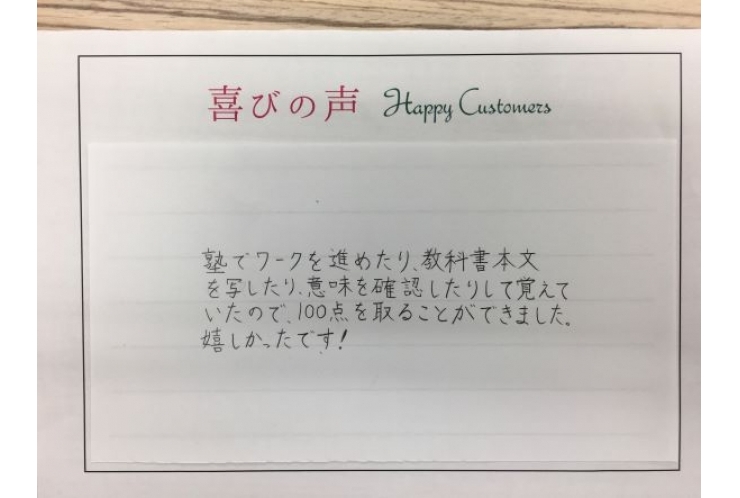 喜びの声 Happy Customers
塾でワークを進めたり、教科書本文
を写したり、意味を確認したりして覚えて
いたので、100点を取ることができました。
嬉しかったです!